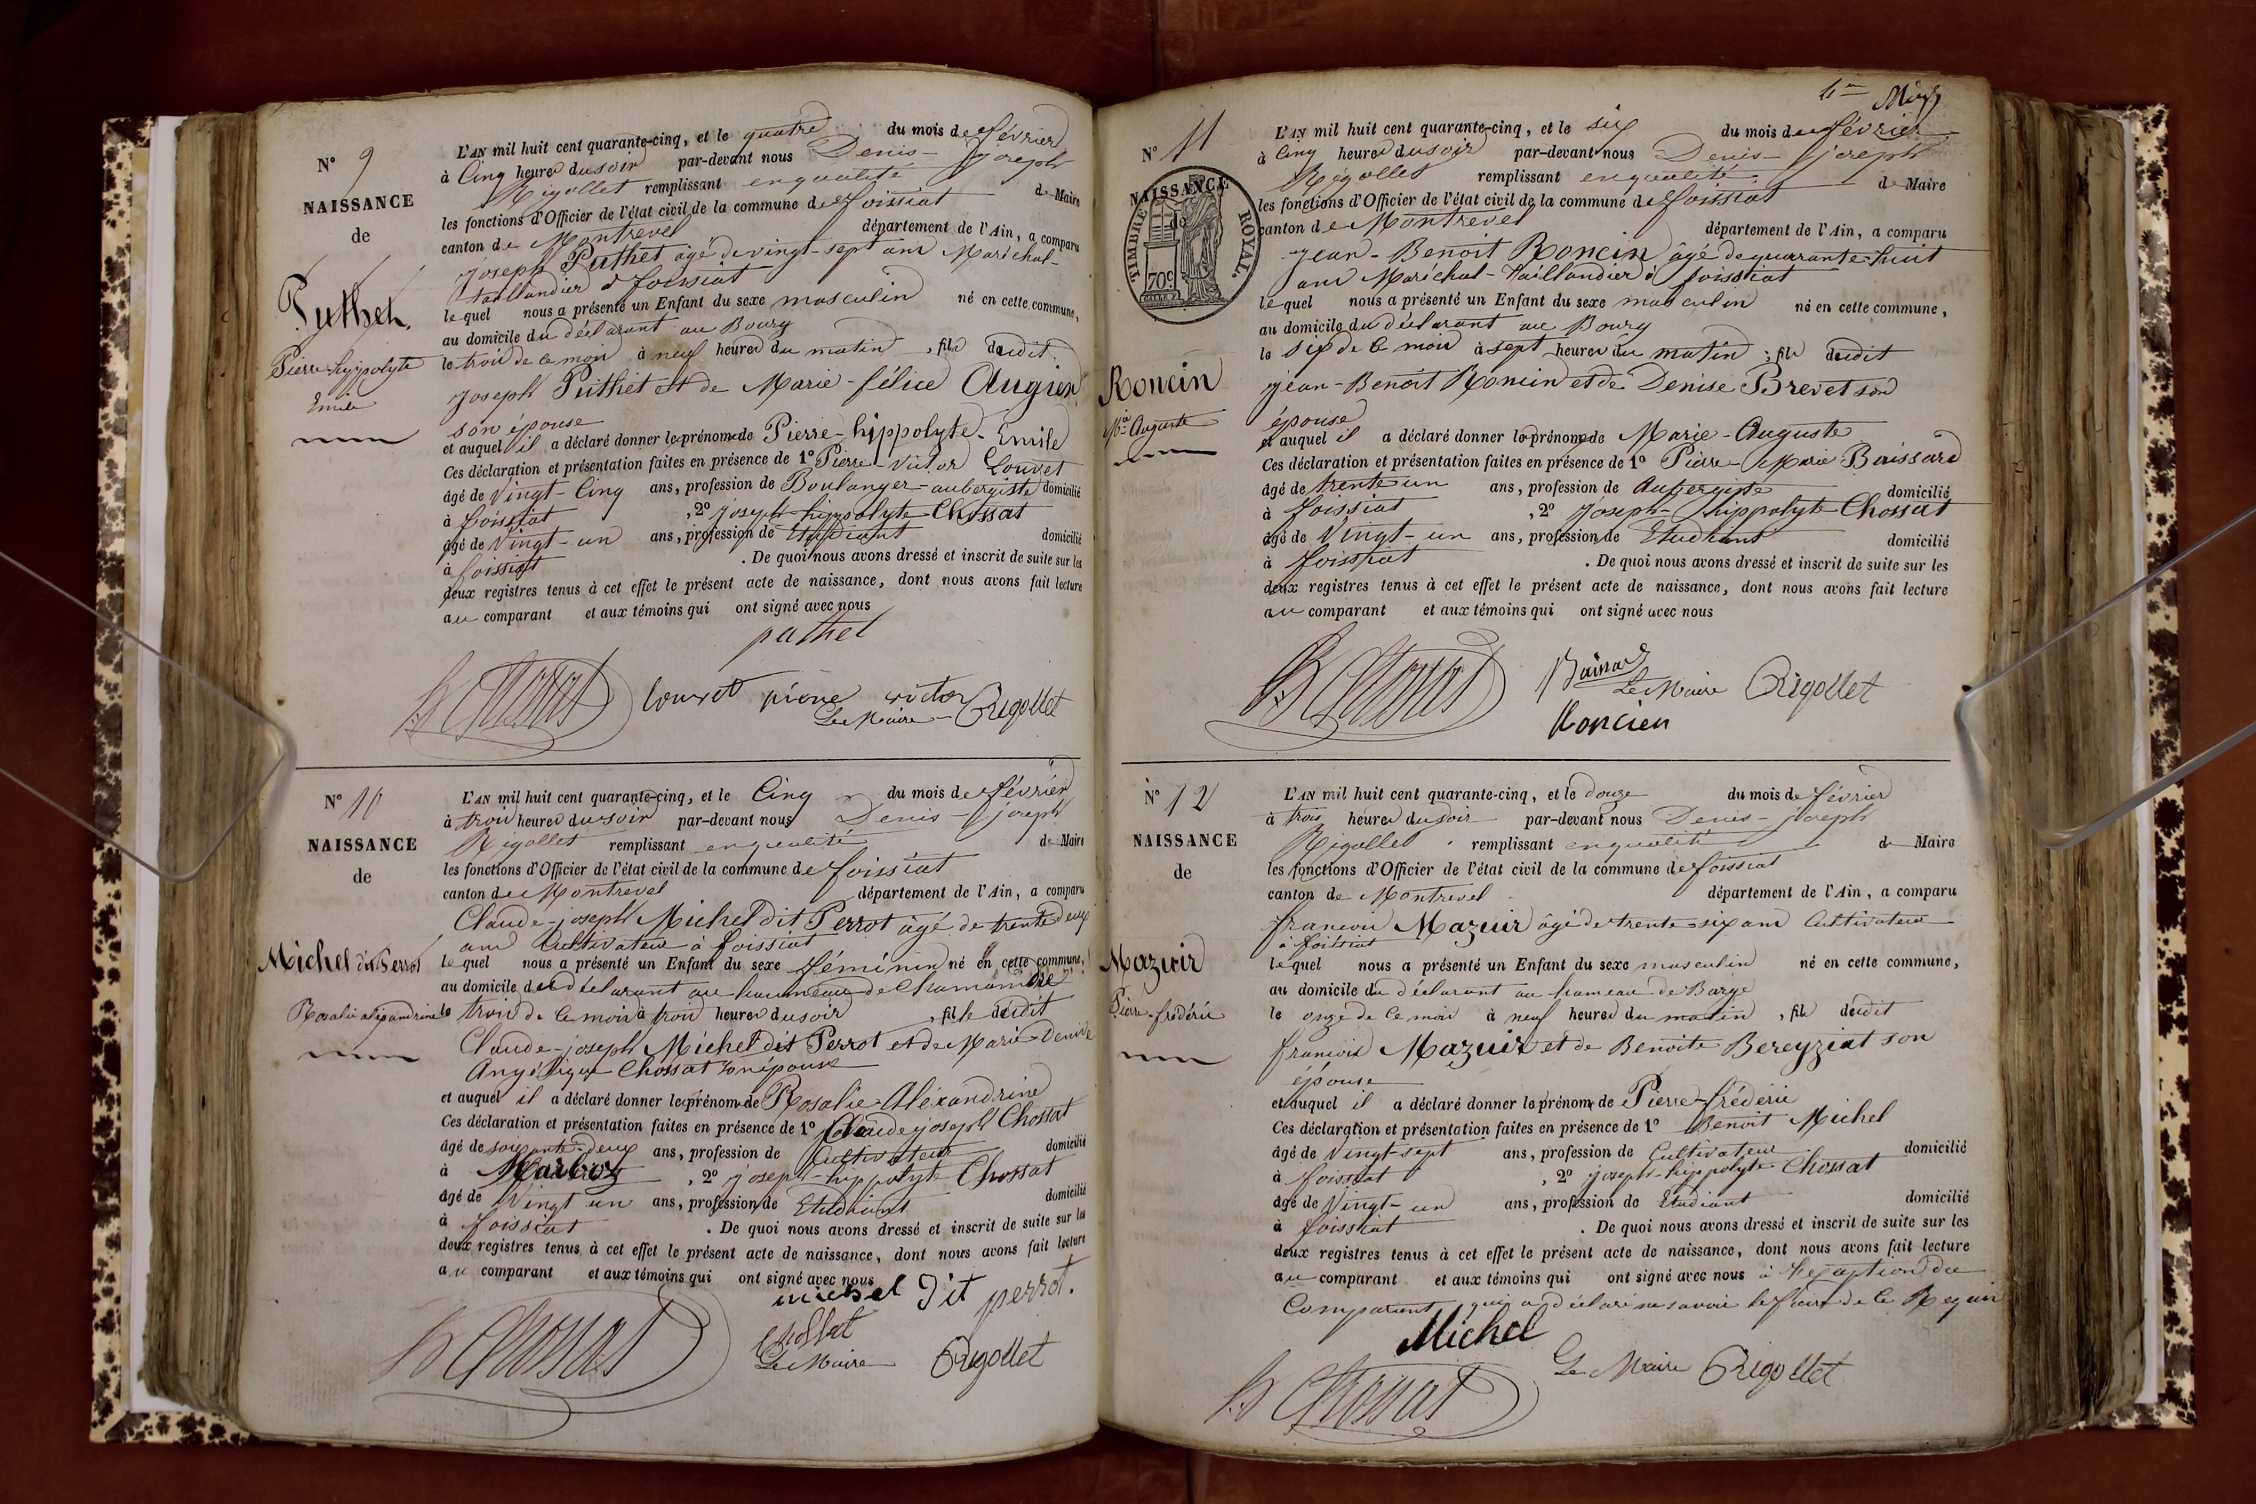 N° 9
NAISSANCE
de
Puthet
Pierre-hyppolyte
Emile
L'AN mil huit cent quarante-cinq, et le quatre du mois de février
à Cinq heures du soir par-devant nous Denis-joseph
Rigollet remplissant en qualité de Maire
les fonctions d'Officier de l'état civil de la commune de foissiat
canton de Montrevel département de l'Ain, a comparu
joseph Puthet âgé de vingt-sept ans Maréchal-
taillandier à foissiat
lequel nous a présenté un Enfant du sexe masculin né en cette commune,
au domicile du déclarant au Bourg
le trois de ce mois à neuf heures du matin, fils dudit
joseph Puthet et de Marie-félice Augier
son épouse
et auquel il a déclaré donner les prénoms de Pierre-hippolyte-Emile
Ces déclaration et présentation faites en présence de 1° Pierre-victor Louvet
âgé de Vingt-Cinq ans, profession de Boulanger-aubergiste domicilié
à foissiat, 2° joseph-hippolyte Chossat
âgé de Vingt-un ans, profession de Etudiant domicilié
à foissiat. De quoi nous avons dressé et inscrit de suite sur les
deux registres tenus à cet effet le présent acte de naissance, dont nous avons fait lecture
au comparant et aux témoins qui ont signé avec nous
puthet
h Chossat louvet pierre victor
Le Maire Rigollet
N° 10
NAISSANCE
de
Michel dit Perrot
Rosalie alexandrine
L'AN mil huit cent quarante-cinq, et le Cinq du mois de février
à trois heures du soir par-devant nous Denis-joseph
Rigollet remplissant en qualité de Maire
les fonctions d'Officier de l'état civil de la commune de foissiat
canton de Montrevel département de l'Ain, a comparu
Claude-joseph Michel dit Perrot âgé de trente deux
ans Cultivateur à foissiat
lequel nous a présenté un Enfant du sexe féminin né en cette commune,
au domicile du déclarant au hameau de
le trois de ce mois à trois heures du soir, fille dudit
Claude-joseph Michel dit Perrot et de Marie-Denise
Angélique Chossat son épouse
et auquel il a déclaré donner les prénoms de Rosalie-Aléxandrine
Ces déclaration et présentation faites en présence de 1° Claude joseph Chossat
âgé de soixante-deux ans, profession de Cultivateur domicilié
à Marboz, 2° joseph-hippolyte Chossat
âgé de Vingt un ans, profession de Etudiant domicilié
à foissiat. De quoi nous avons dressé et inscrit de suite sur les
deux registres tenus à cet effet le présent acte de naissance, dont nous avons fait lecture
au comparant et aux témoins qui ont signé avec nous
michel dit perrot.
h Chossat Chossat
Le Maire Rigollet
N° 11
NAISSANCE
de
TIMBRE ROYAL.
70c
Roncin
Mie Auguste
L'AN mil huit cent quarante-cinq, et le six du mois de février
à Cinq heures du soir par-devant nous Denis-joseph
Rigollet remplissant en qualité de Maire
les fonctions d'Officier de l'état civil de la commune de foissiat
canton de Montrevel département de l'Ain, a comparu
jean-Benoit Roncin âgé de quarante-huit
ans Maréchal-Taillandier à foissiat
lequel nous a présenté un Enfant du sexe masculin né en cette commune,
au domicile du déclarant au Bourg
le six de ce mois à sept heures du matin, fils dudit
jean-Benoit Roncin et de Denise Brevet son
épouse
et auquel il a déclaré donner les prénoms de Marie-Auguste
Ces déclaration et présentation faites en présence de 1° Pierre-Marie Boissard
âgé de trente un ans, profession de Aubergiste domicilié
à foissiat, 2° Joseph-hippolyte Chossat
âgé de Vingt-un ans, profession de Etudiant domicilié
à foissiat. De quoi nous avons dressé et inscrit de suite sur les
deux registres tenus à cet effet le présent acte de naissance, dont nous avons fait lecture
au comparant et aux témoins qui ont signé avec nous
h Chossat
Le Maire Rigollet
Roncien
N° 12
NAISSANCE
de
Mazuir
Pierre-frédéric
L'AN mil huit cent quarante-cinq, et le douze du mois de février
à trois heures du soir par-devant nous Denis-joseph
Rigollet remplissant en qualité de Maire
les fonctions d'Officier de l'état civil de la commune de foissiat
canton de Montrevel département de l'Ain, a comparu
françois Mazuir âgé de trente-six ans Cultivateur
à foissiat
lequel nous a présenté un Enfant du sexe masculin né en cette commune,
au domicile du déclarant au hameau de Barge
le onze de ce mois à neuf heures du matin, fils dudit
françois Mazuir et de Benoite Bereyziat son
épouse
et auquel il a déclaré donner les prénoms de Pierre-frédéric
Ces déclaration et présentation faites en présence de 1° Benoit Michel
âgé de Vingt-sept ans, profession de Cultivateur domicilié
à foissiat, 2° joseph-hippolyte Chossat
âgé de Vingt-un ans, profession de Etudiant domicilié
à foissiat. De quoi nous avons dressé et inscrit de suite sur les
deux registres tenus à cet effet le présent acte de naissance, dont nous avons fait lecture
au comparant et aux témoins qui ont signé avec nous à l'exception du
Comparant qui a déclaré ne savoir le faire de ce Requis
Michel
h Chossat Le Maire Rigollet